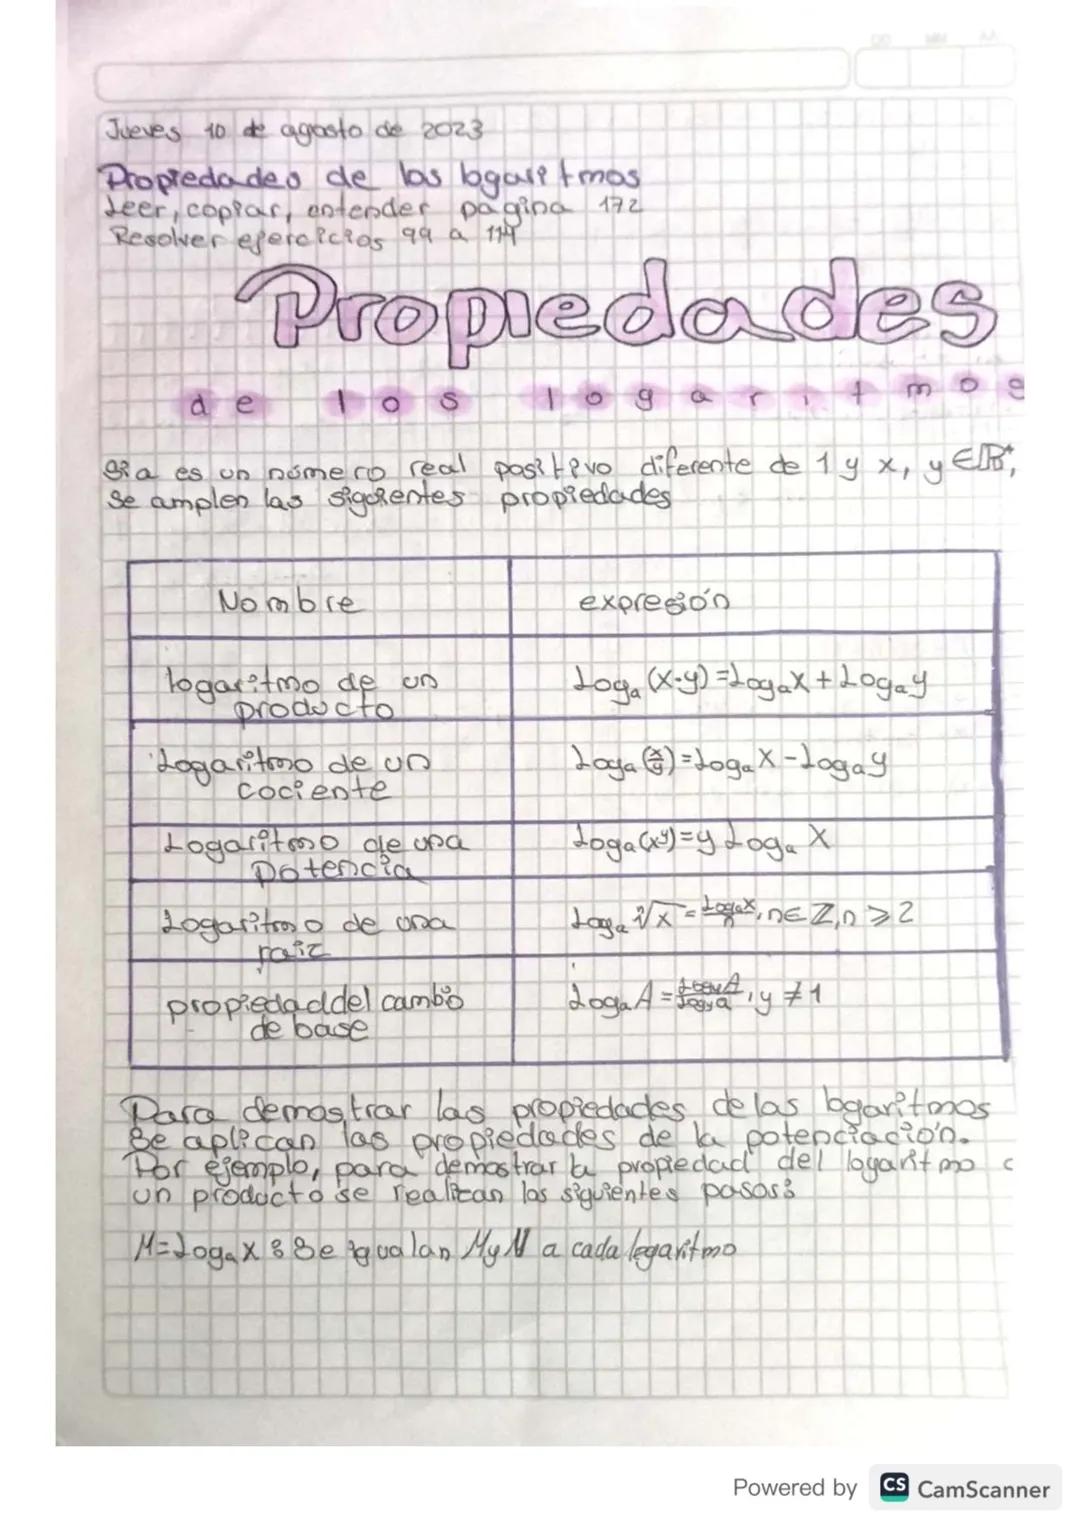 Jueves 10 de agosto de 2023
Propiedades de los logaritmos
Leer, copiar, entender pagina 172
Resolver ejercicios 99 a 114
Propiedades
de los logaritmos
Si a es un número real positivo diferente de 1 y x, y ∈ ℝ⁺,
se cumplen las siguientes propiedades
Nombre
expresión
logaritmo de un
producto
Logₐ (x·y) = Logₐ x + Logₐ y
Logaritmo de un
cociente
Logₐ (x/y) = Logₐ x - Logₐ y
Logaritmo de una
Potencia
Logₐ (xʸ) = y Logₐ x
Logaritmo de una
raiz
Logₐ ⁿ√x = Logₐ x/n, n ∈ ℤ, n ⩾ 2
propiedad del cambio
de base
Logₐ A = Logy A/Logy a, y ≠ 1
Para demostrar las propiedades de las logaritmos
se aplican las propiedades de la potenciación.
Por ejemplo, para demostrar la propiedad del logaritmo
un producto se realizan los siguientes pasos:
M = Logₐ x : Se igualan M y N a cada logaritmo
Powered by CS CamScanner